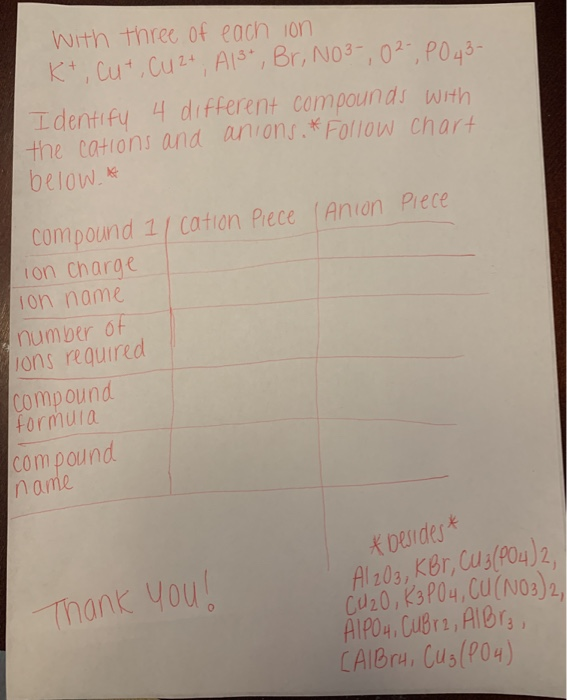 With three of each ion
K+, Cu+, Cu2+, Al3+, Br, NO3-, O2-, PO43-
Identify 4 different compounds with
the cations and anions.*Follow chart
below.*
compound 1 Cation Piece Anion Piece
ion charge
ion name
number of
ions required
compound
formula
compound
name
*besides*
Al2O3, KBr, Cu3(PO4)2,
Cu2O, K3PO4, Cu(NO3)2,
AlPO4, CuBr2, AlBr3,
[AlBr4, Cu3(PO4)
Thank you!